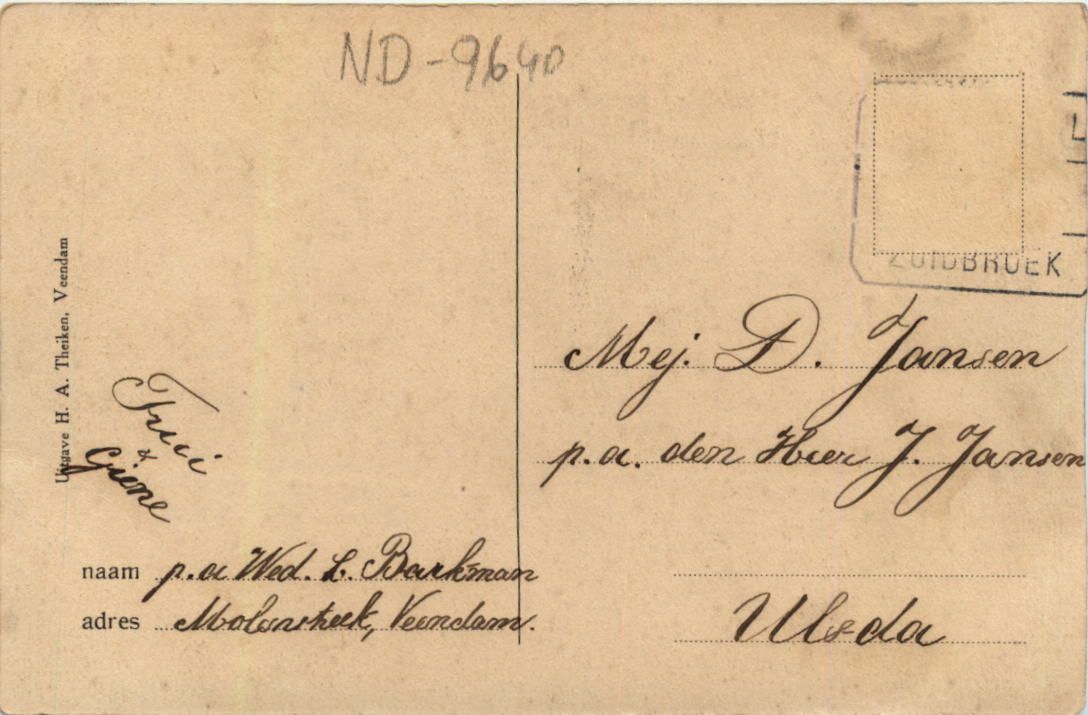 ND-9640
ZUIDBROEK
Uitgave H. A. Theiken, Veendam
Trui
&
Giene
naam p.a Wed. L. Barkman
adres Molenstreek, Veendam.
Mej. D. Jansen
p.a. den Heer J. Jansen
Ulsda